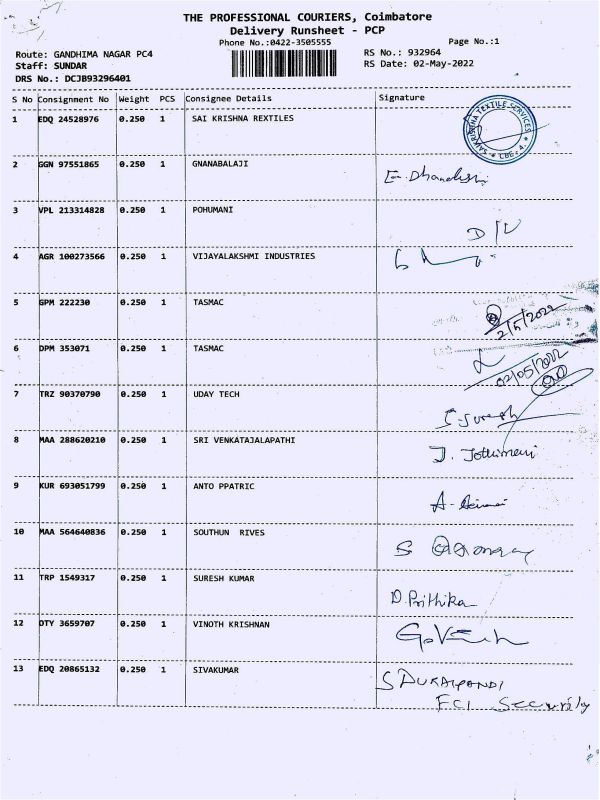 THE PROFESSIONAL COURIERS, Coimbatore
Delivery Runsheet - PCP
Phone No.:0422-3505555 Page No.:1
Route: GANDHIMA NAGAR PC4 RS No.: 932964
Staff: SUNDAR RS Date: 02-May-2022
DRS No.: DCJB93296401
S No Consignment No Weight PCS Consignee Details Signature
1 EDQ 24528976 0.250 1 SAI KRISHNA REXTILES
TEXTILE SERVICES
CBE-4.
2 GGN 97551865 0.250 1 GNANABALAJI
3 VPL 213314828 0.250 1 POHUMANI
4 AGR 100273566 0.250 1 VIJAYALAKSHMI INDUSTRIES
5 GPM 222230 0.250 1 TASMAC 2/5/2022
6 DPM 353071 0.250 1 TASMAC 02/05/2022
7 TRZ 90370790 0.250 1 UDAY TECH S. Suresh
8 MAA 288620210 0.250 1 SRI VENKATAJALAPATHI J. Jothimani
9 KUR 693051799 0.250 1 ANTO PPATRIC
10 MAA 564640836 0.250 1 SOUTHUN RIVES
11 TRP 1549317 0.250 1 SURESH KUMAR D. Prithika
12 DTY 3659707 0.250 1 VINOTH KRISHNAN
13 EDQ 20865132 0.250 1 SIVAKUMAR S DURAIPANDI
FCI Security